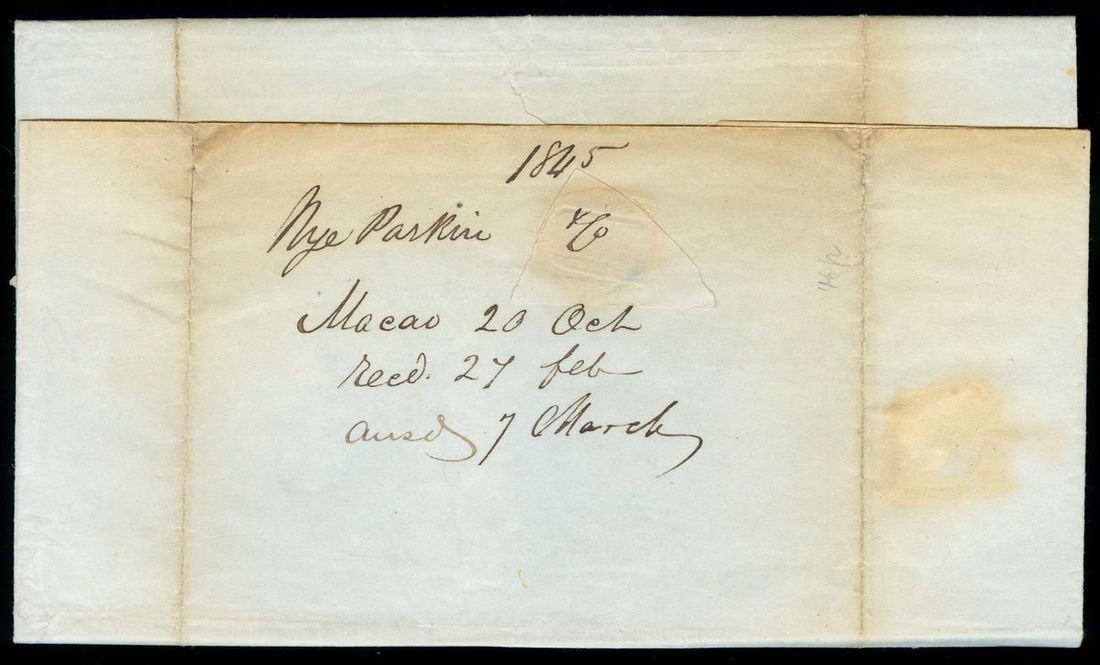 1845
Nye Parkin & Co
Macao 20 Oct
recd. 27 feb
ansd 7 March